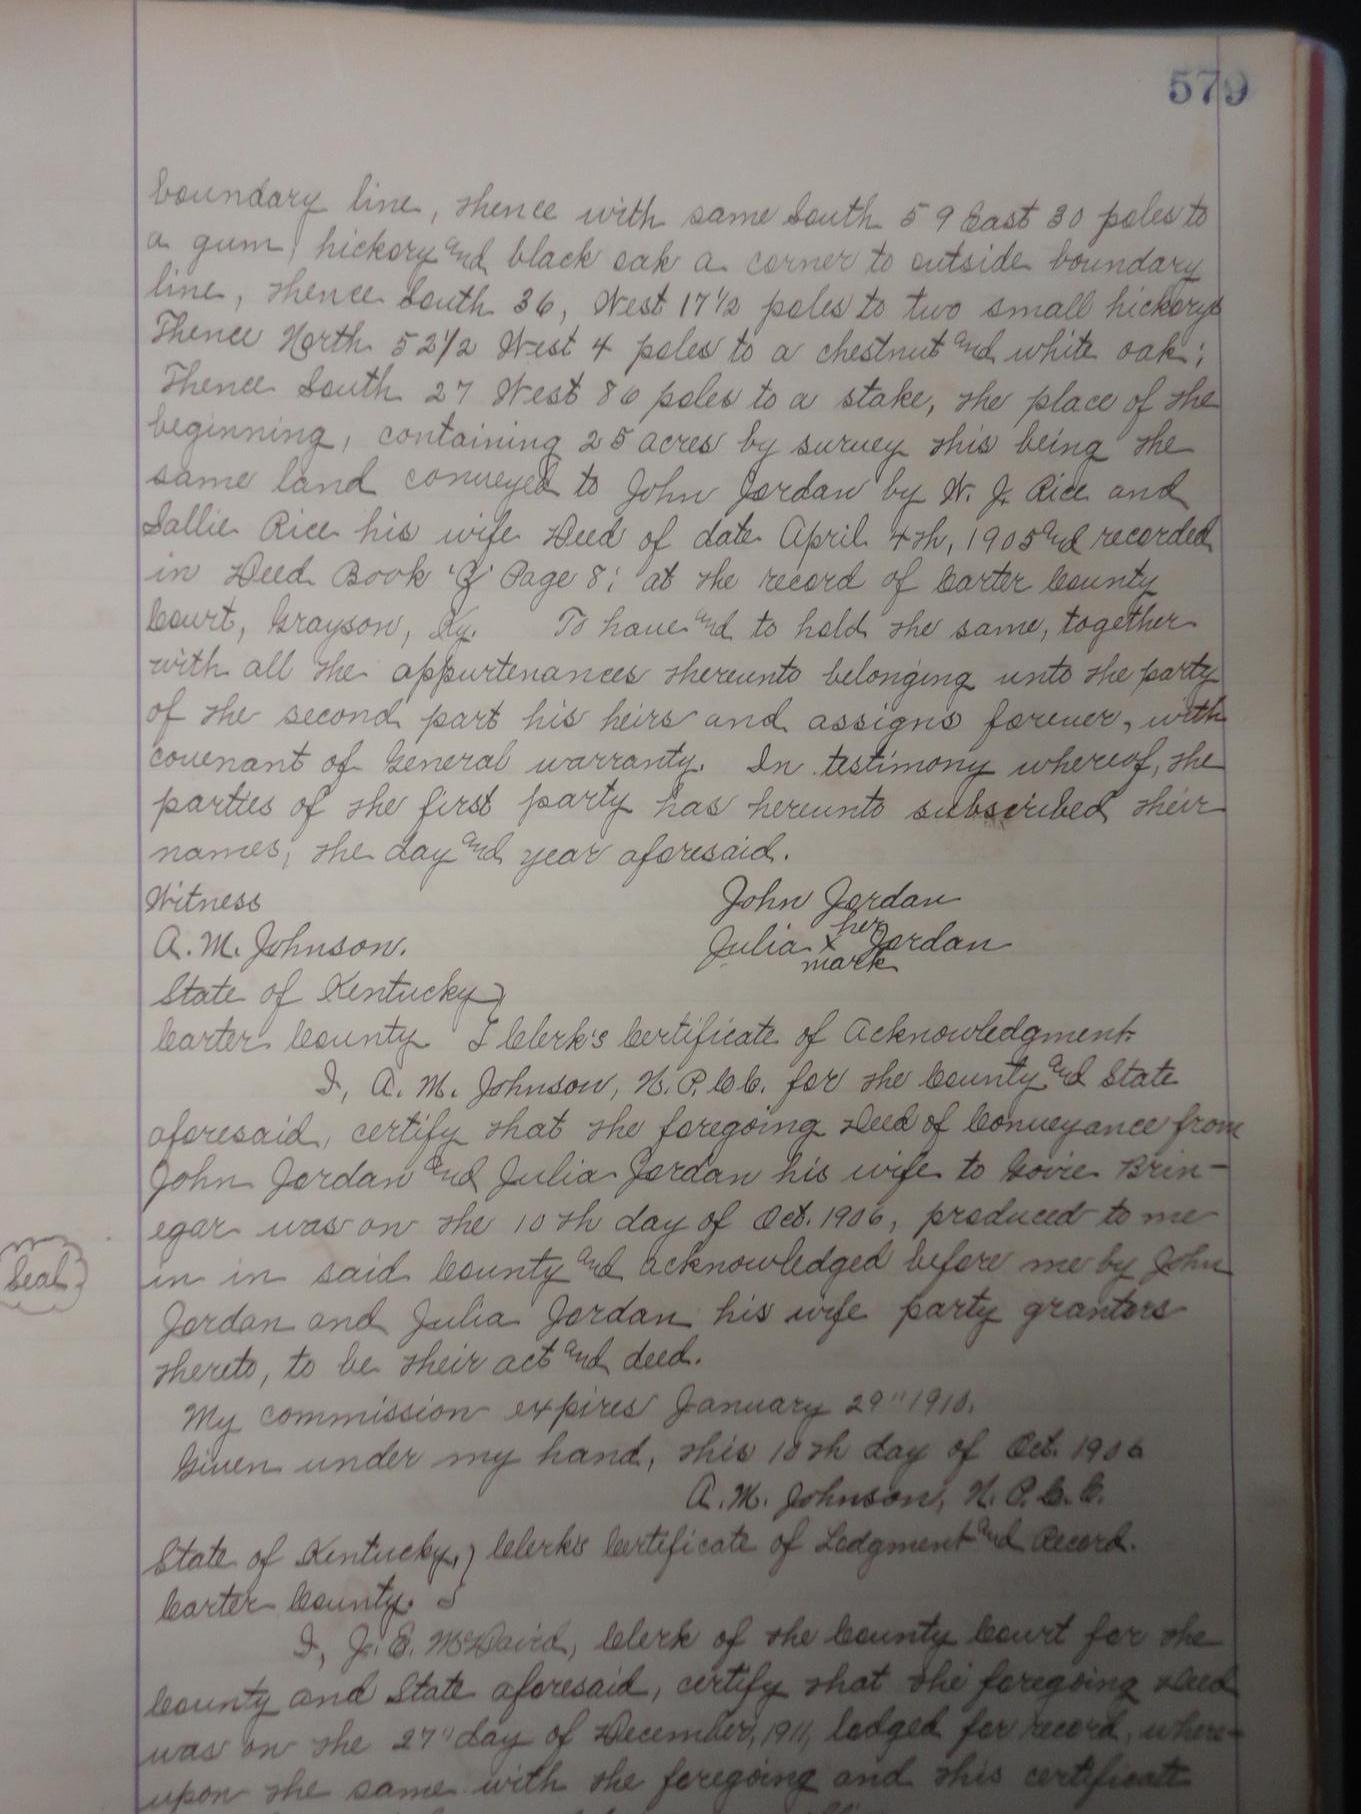 579
boundary line, thence with same South 59 East 30 poles to
a gum, hickory and black oak a corner to outside boundary
line, thence South 36, West 17 1/2 poles to two small hickorys
Thence North 52 1/2 West 4 poles to a chestnut and white oak;
Thence South 27 West 86 poles to a stake, the place of the
beginning, containing 25 acres by survey this being the
same land conveyed to John Jordan by W. J. Rice and
Sallie Rice his wife Deed of date April 4th, 1905 and recorded
in Deed Book Page 8; at the record of Carter County
Court, Grayson, Ky. To have and to hold the same, together
with all the appurtenances thereunto belonging unto the party
of the second part his heirs and assigns forever, with
covenant of General warranty. In testimony whereof, the
parties of the first party has hereunto subscribed their
names, the day and year aforesaid.
Witness John Jordan
her
A. M. Johnson. Julia x Jordan
mark
State of Kentucky }
Carter County } Clerk's Certificate of Acknowledgment.
I, A. M. Johnson, N. P. C. C. for the County and State
aforesaid, certify that the foregoing Deed of Conveyance from
John Jordan and Julia Jordan his wife to Govie Brin-
egar was on the 10th day of Oct. 1906, produced to me
in in said County and acknowledged before me by John
Seal
Jordan and Julia Jordan his wife party grantors
thereto, to be their act and deed.
My commission expires January 29" 1910.
Given under my hand, this 10th day of Oct. 1906
A. M. Johnson, N. P. C. C.
State of Kentucky, } Clerk's Certificate of Lodgment and Record.
Carter County. }
I, J. E. McDavid, Clerk of the County Court for the
County and State aforesaid, certify that the foregoing Deed
was on the 27" day of December, 1911, lodged for record, where-
upon the same with the foregoing and this certificate